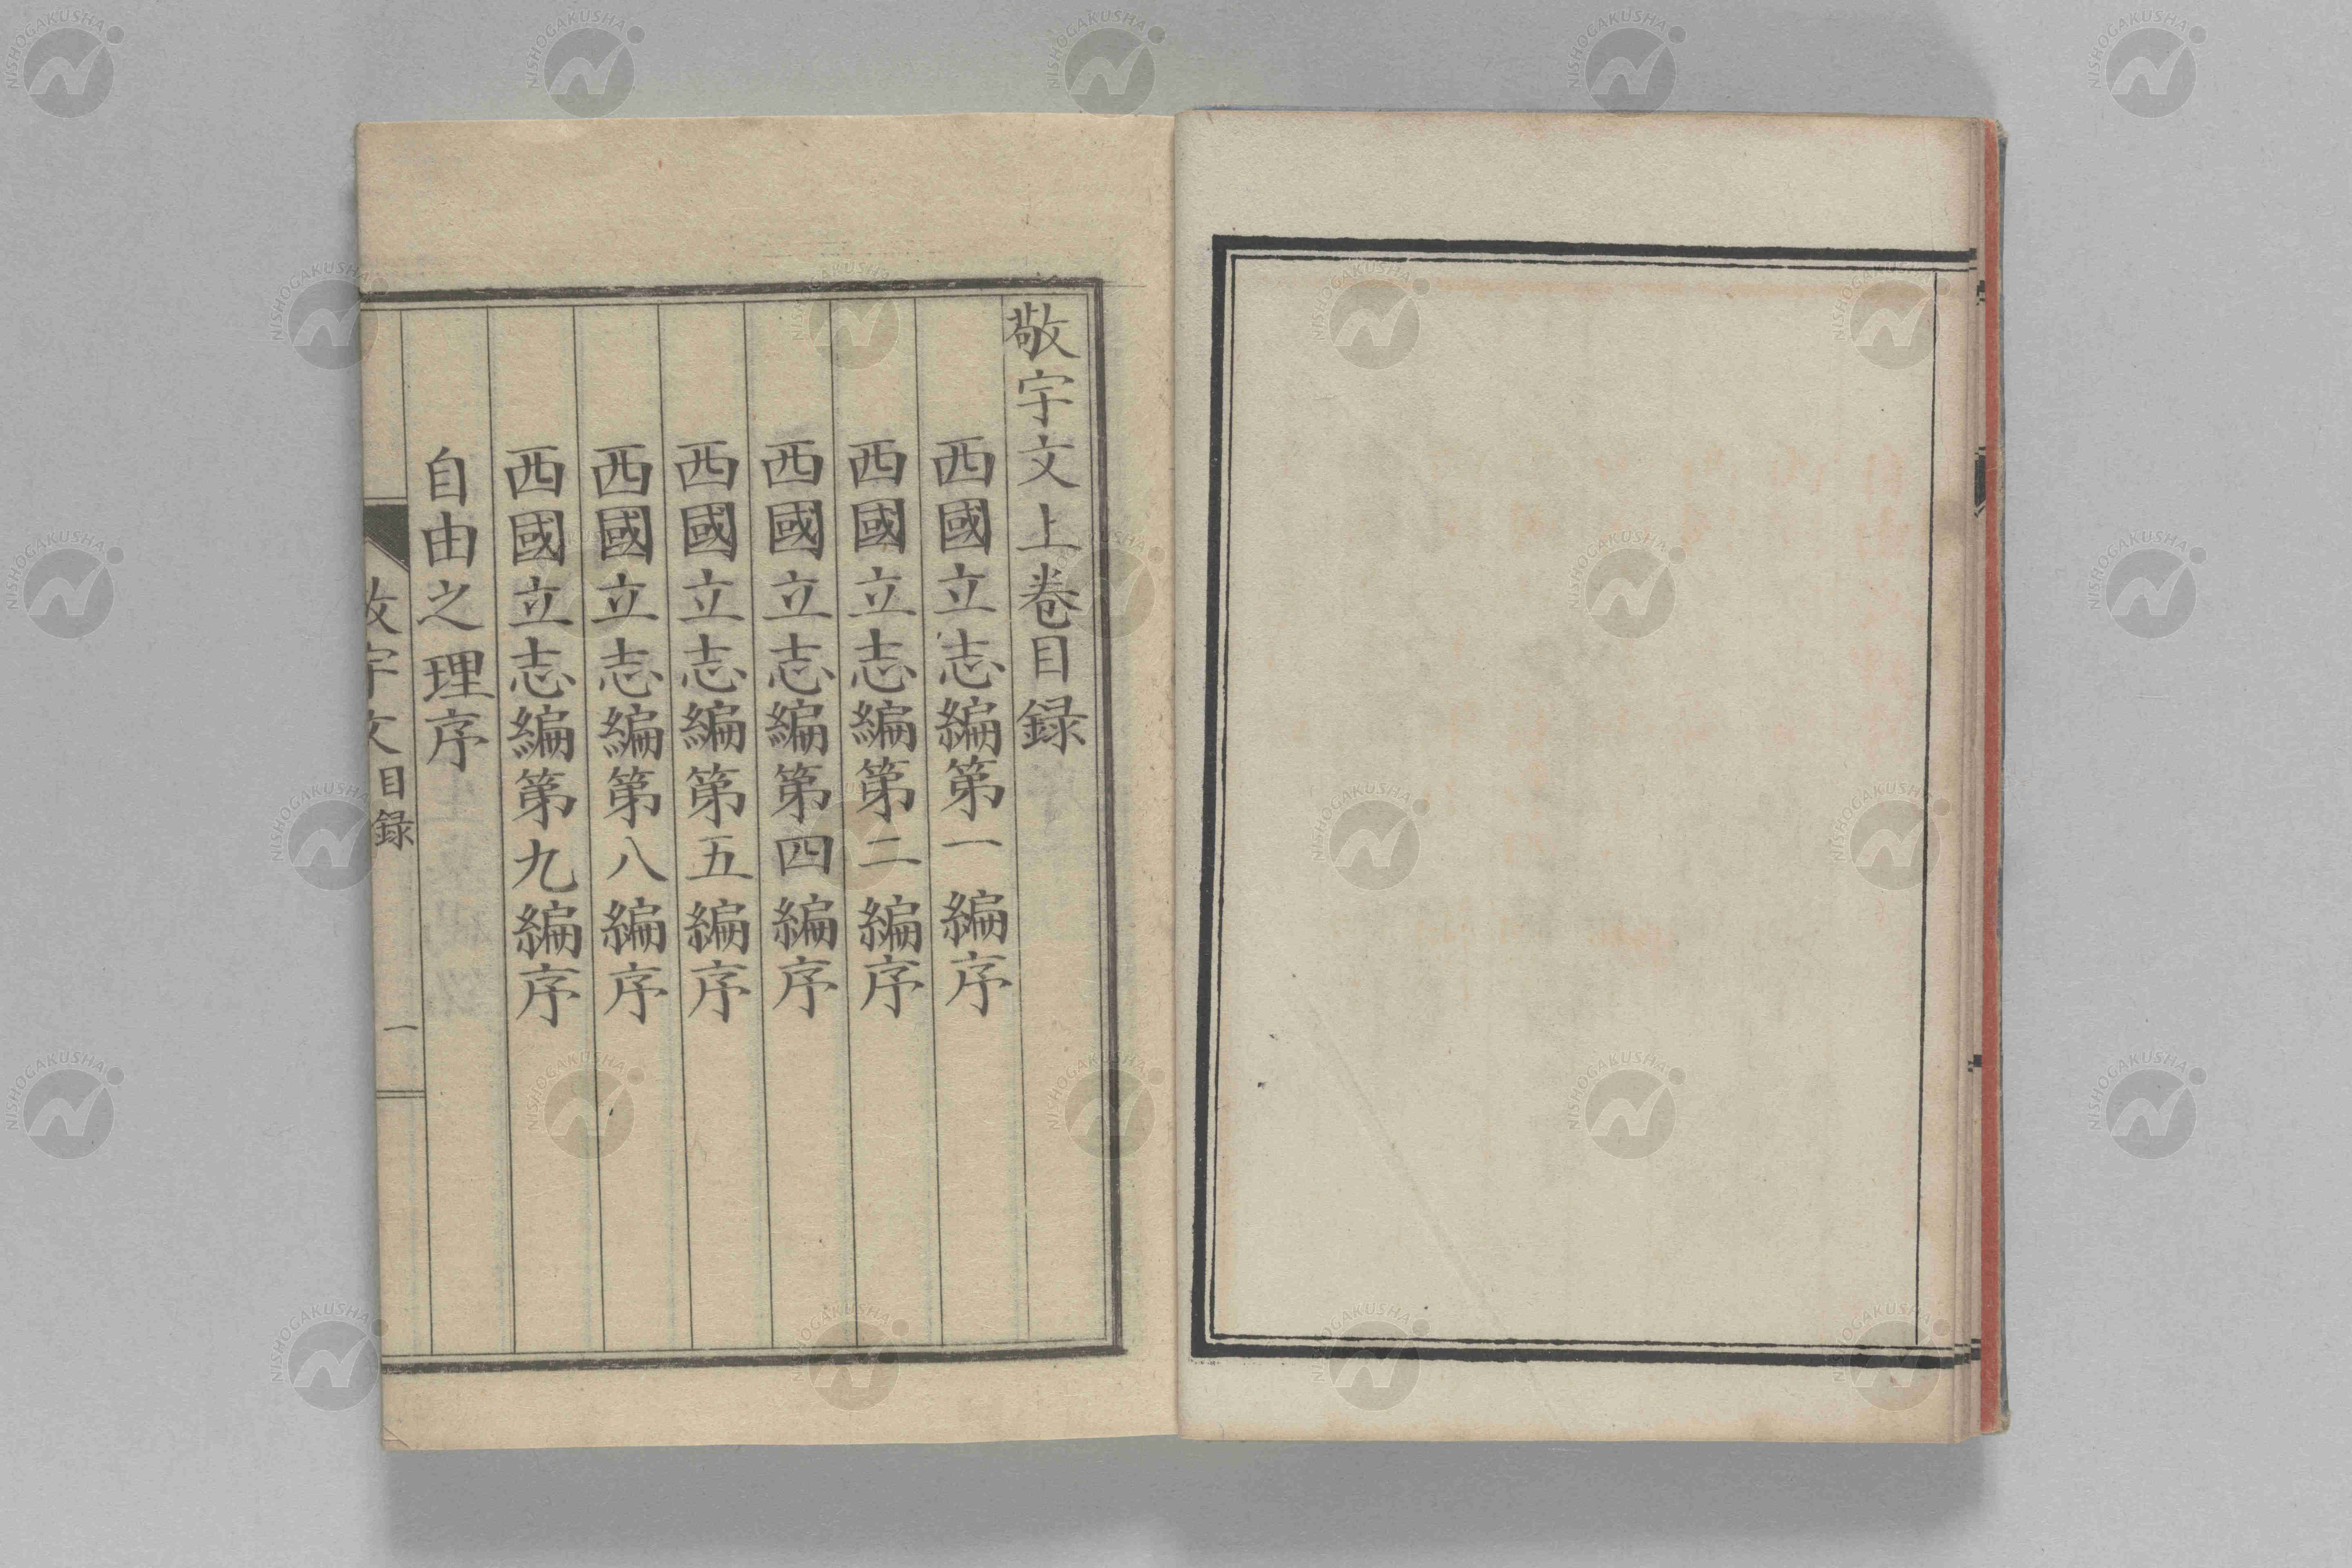 敬宇文上卷目録
西國立志編第一編序
西國立志編第二編序
西國立志編第四編序
西國立志編第五編序
西國立志編第八編序
西國立志編第九編序
自由之理序
敬宇文目録 一
NISHOGAKUSHA